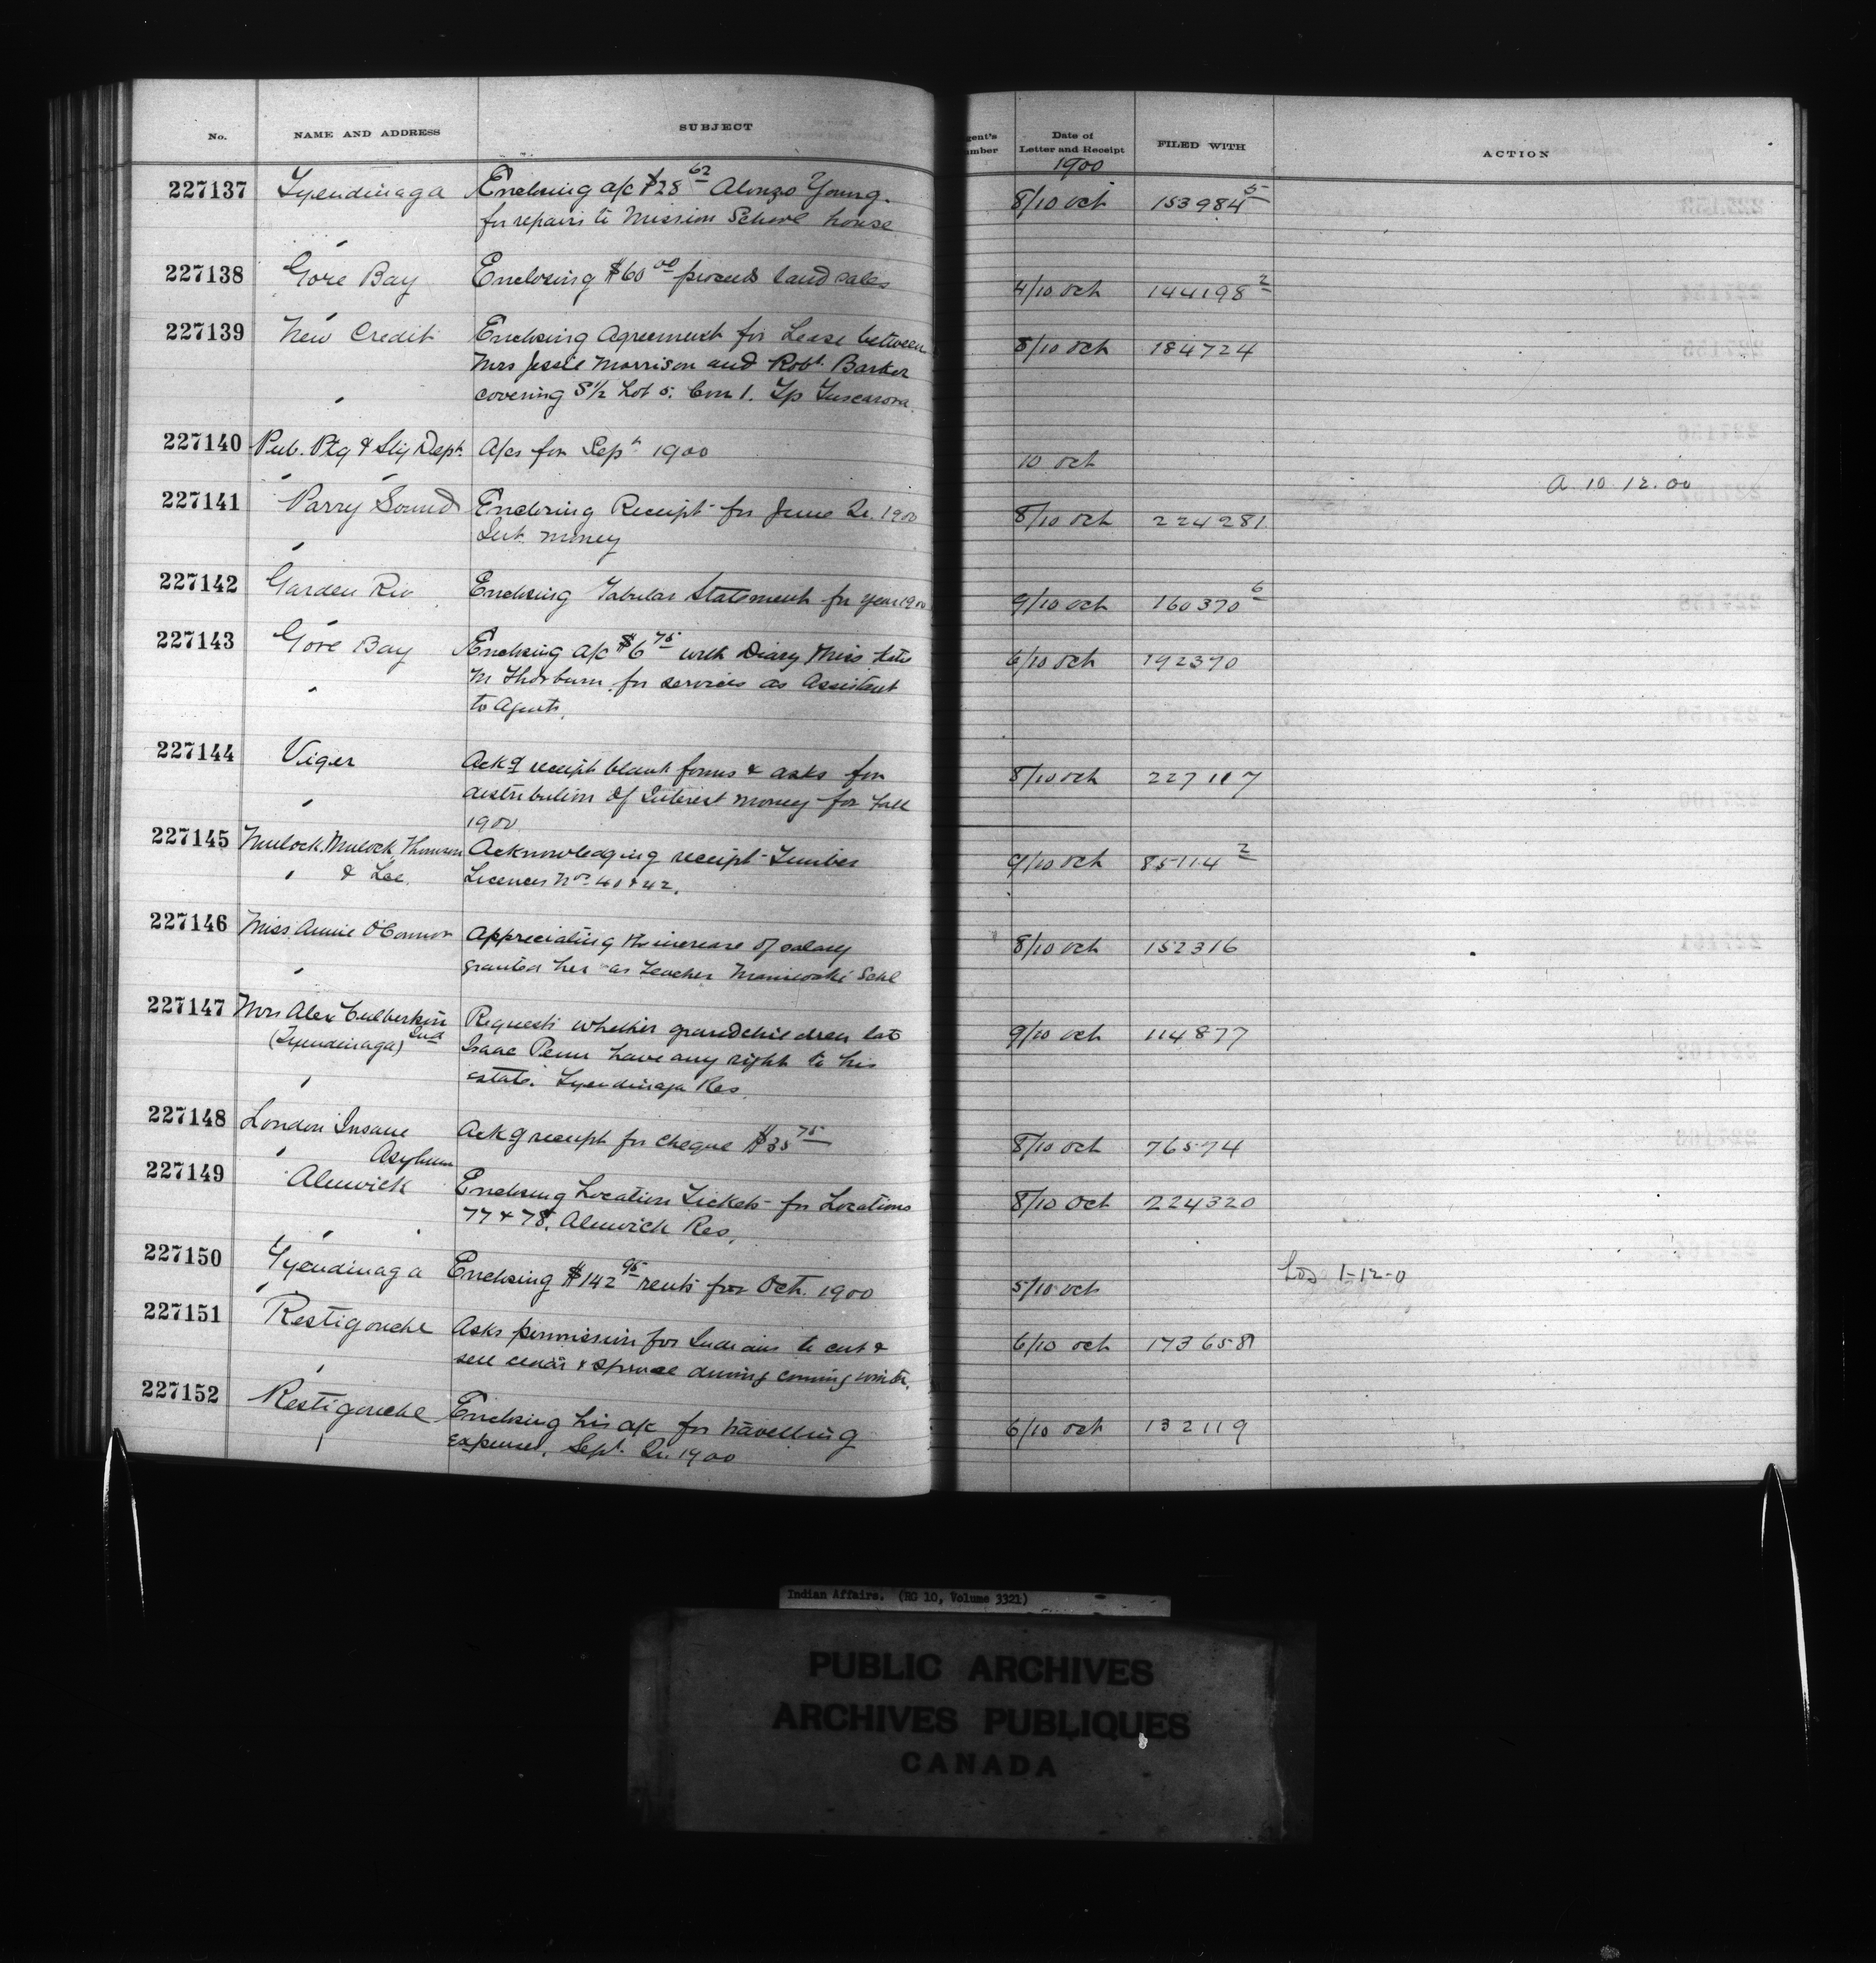 No. NAME AND ADDRESS SUBJECT gent's umber Date of Letter and Receipt FILED WITH ACTION
1900
227137 Tyendinaga Enclosing a/c $28 62 Alonzo Young. 8/10 Oct 153984 5
for repairs to Mission School house
227138 Gore Bay Enclosing $60 00 proceeds land sales 4/10 Oct 144198 2
227139 New Credit Enclosing Agreement for Lease between 8/10 Oct 184724
Mrs Jessie Morrison and Robt. Barker
covering S½ Lot 5. Con 1. Tp Tuscarora.
227140 Pub. Ptg & Sty Dept. A/cs for Sept 1900 10 Oct
A. 10. 12. 00
227141 Parry Sound Enclosing Receipt for June Qr. 1900 8/10 Oct 224281
Int. money
227142 Garden Riv Enclosing Tabular Statement for year 1900 9/10 Oct 160370 6
227143 Gore Bay Enclosing a/c $6 75 with Diary Miss Kate 6/10 Oct 192370
M Thorburn for services as Assistant
to Agent.
227144 Viger Ackg receipt blank forms & asks for 8/10 Oct 227117
distribution of Interest money for Fall
1900
227145 Mulock, Mulock Thomson Acknowledging receipt Timber 9/10 Oct 85114 2
& Lee. Licences Nos 41 & 42.
227146 Miss Annie O'Connor Appreciating the increase of salary 8/10 Oct 152316
granted her as teacher Maniwaki Schl
227147 Mrs Alex Culbertson Requests whether grandchildren late 9/10 Oct 114877
(Tyendinaga) Ind Isaac Penn have any right to his
estate. Tyendinaga Res.
227148 London Insane Ackg receipt for cheque $35 75 8/10 Oct 76574
Asylum
227149 Alnwick Enclosing Location Tickets for Locations 8/10 Oct 224320
77 & 78. Alnwick Res.
227150 Tyendinaga Enclosing $142 95 rents for Oct. 1900 5/10 Oct 1-12-0
227151 Restigouche Asks permission for Indians to cut & 6/10 Oct 173658
sell cedar & spruce during coming winter.
227152 Restigouche Enclosing his a/c for travelling 6/10 Oct 132119
expenses, Sept. Qr. 1900
Indian Affairs. (RG 10, Volume 3321)
PUBLIC ARCHIVES
ARCHIVES PUBLIQUES
CANADA